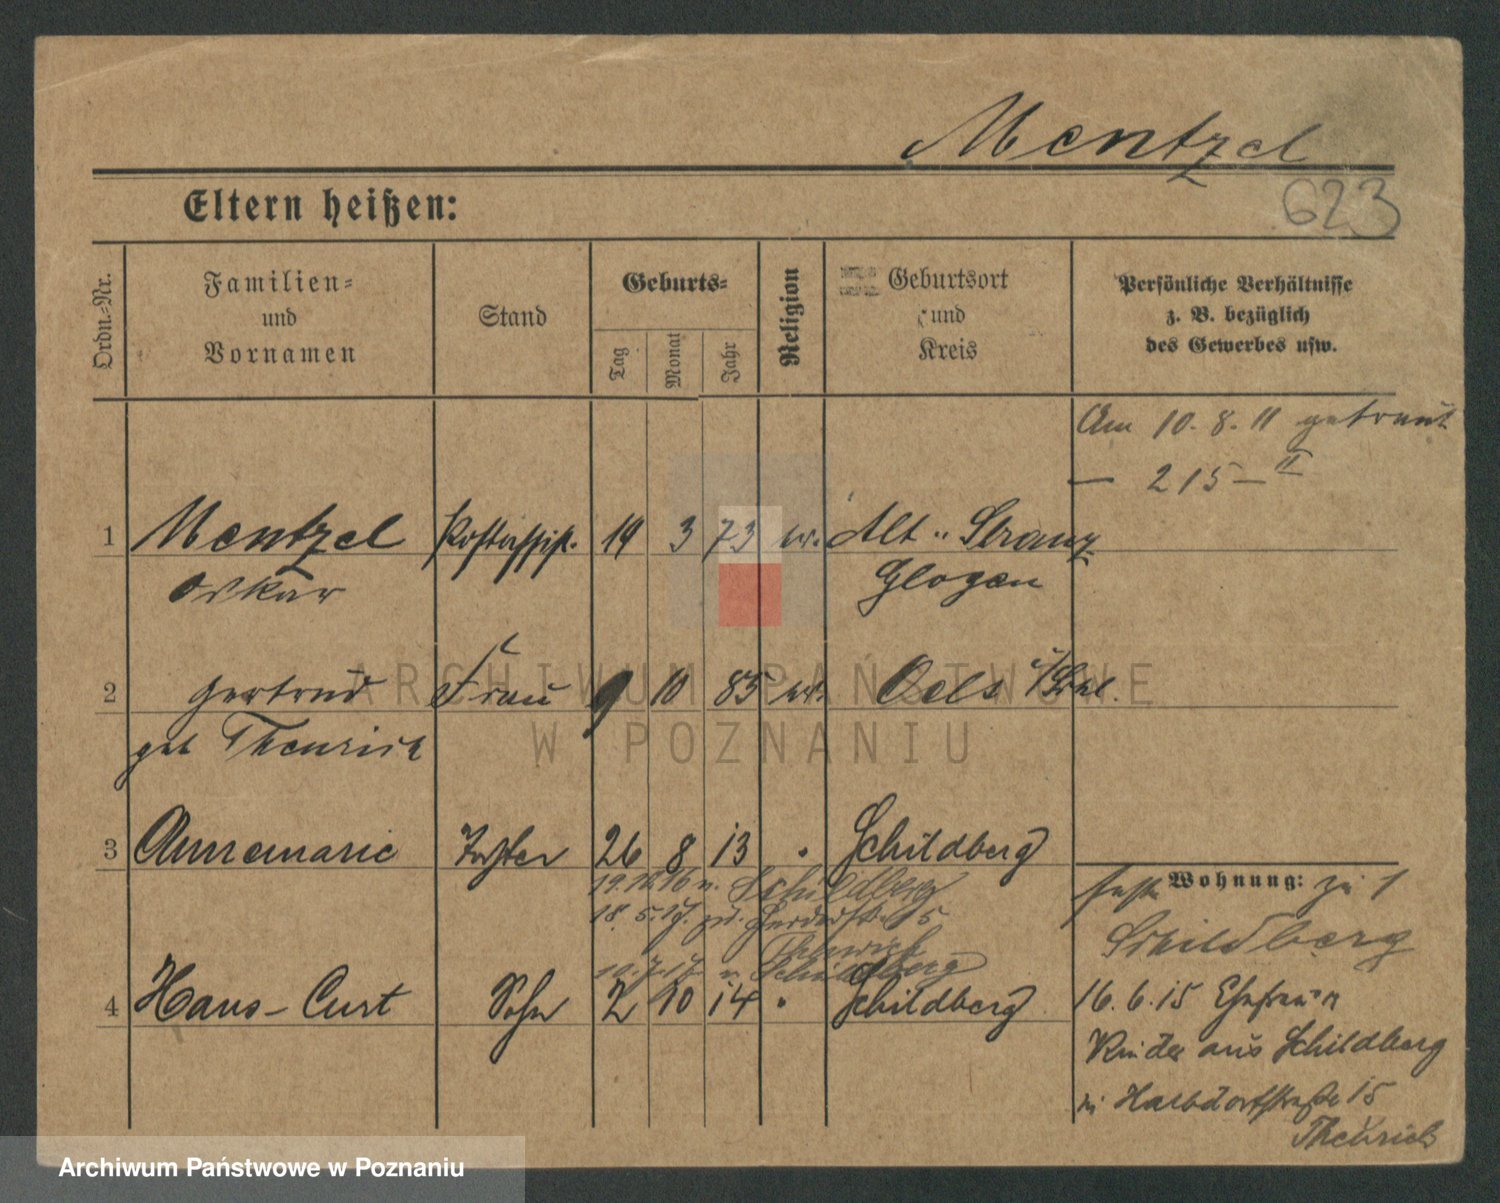 Mentzel
623
Eltern heißen:
Ordn.-Nr.
Familien-
und
Vornamen
Stand
Geburts-
Tag
Monat
Jahr
Religion
Geburtsort
und
Kreis
Persönliche Verhältnisse
z. B. bezüglich
des Gewerbes usw.
Am 10. 8. 11 getraut
— 215 — II
1 Mentzel Postassist. 19 3 73 ev. Alt-Stranz
Oskar Glogau
2 Gertrud Frau 9 10 85 ev. Oels i/Schl.
geb Theurich
3 Annemarie Tochter 26 8 13 " Schildberg
Wohnung: zu 1
Schildberg
19. 10. 16 n. Schildberg
18. 5. 17. zu. 15
Theurich
10. 7. 17 n. Schildberg
4 Hans-Curt Sohn 2 10 14 " Schildberg
16. 6. 15 Ehefrau u
Kinder aus Schildberg
in Halbdorfstraße 15
Theurich
ARCHIWUM PAŃSTWOWE
W POZNANIU
Archiwum Państwowe w Poznaniu